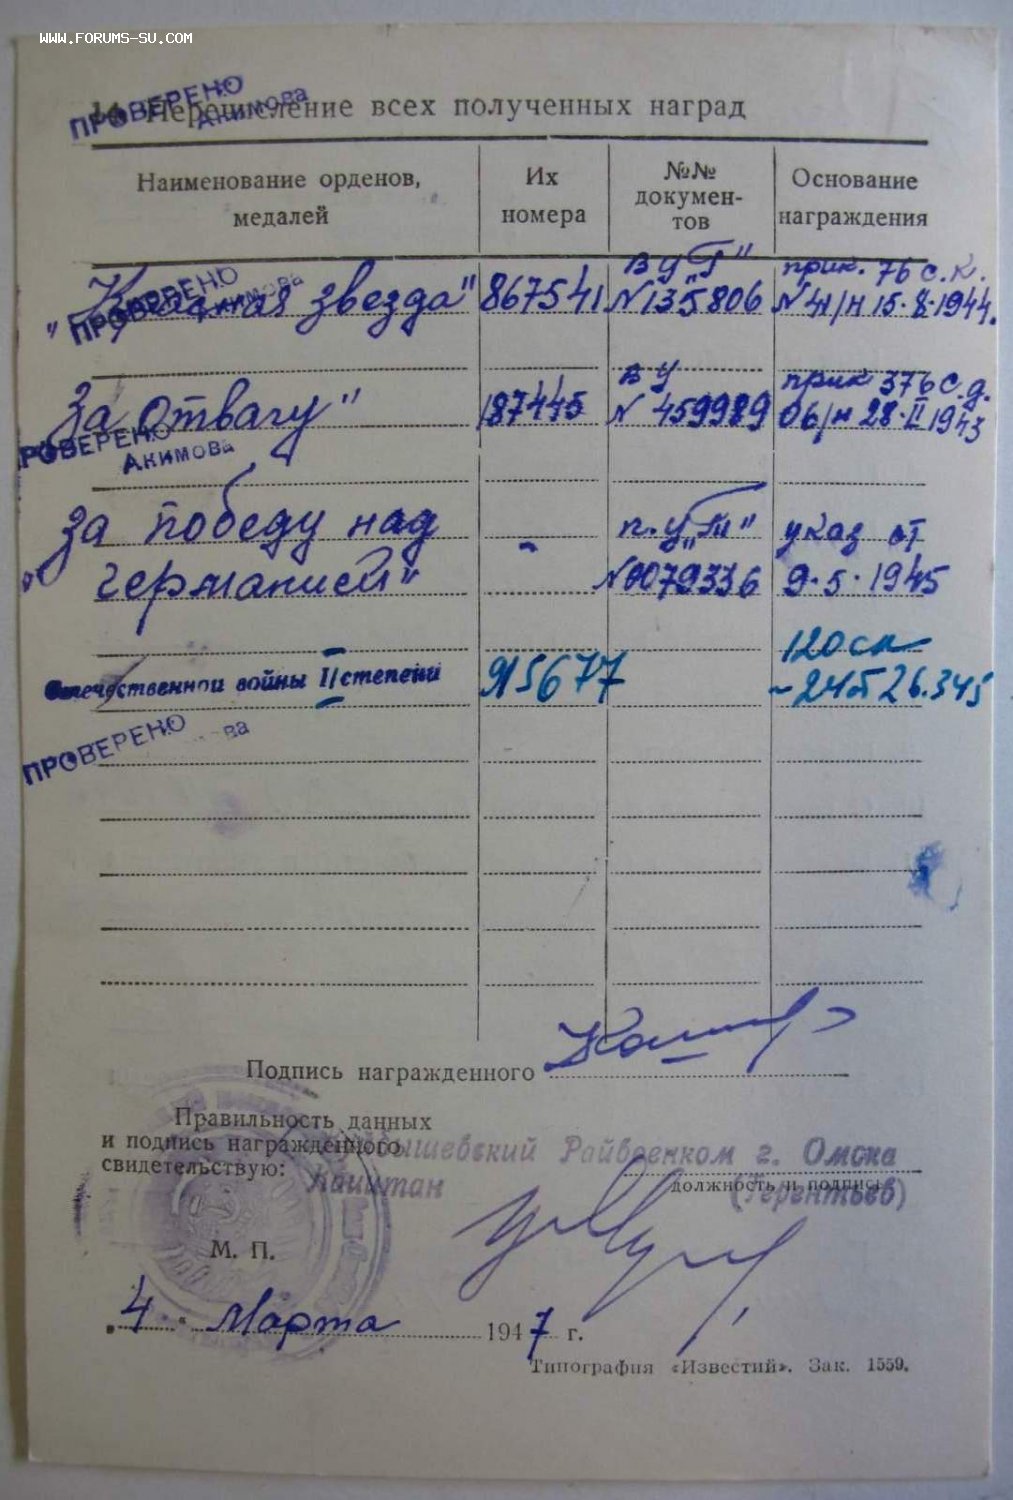 WWW.FORUMS-SU.COM
14. Перечисление всех полученных наград
ПРОВЕРЕНО
Акимова
Наименование орденов, медалей
Их номера
№№ докумен-
тов
Основание награждения
ПРОВЕРЕНО
Акимова
"Красная звезда" 867541 ву "Г" №135806 прик. 76 с.к. №41/н 15.8.1944.
"За отвагу" 187445 ву № 459989 прик 376 с.д. 06/н 28.II 1943
ПРОВЕРЕНО
Акимова
За победу над п.у "Гш" указ от
"Германией" №0079336 9.5.1945
Отечественной войны II степени 915677 120 ск
24 26.3.45
ПРОВЕРЕНО
Подпись награжденного
Правильность данных
и подпись награжденного
свидетельствую:
Райвоенком г. Омска
должность и подпись
Капитан (Терентьев)
М. П.
"4" Марта 1947 г.
Типография «Известий». Зак. 1559.